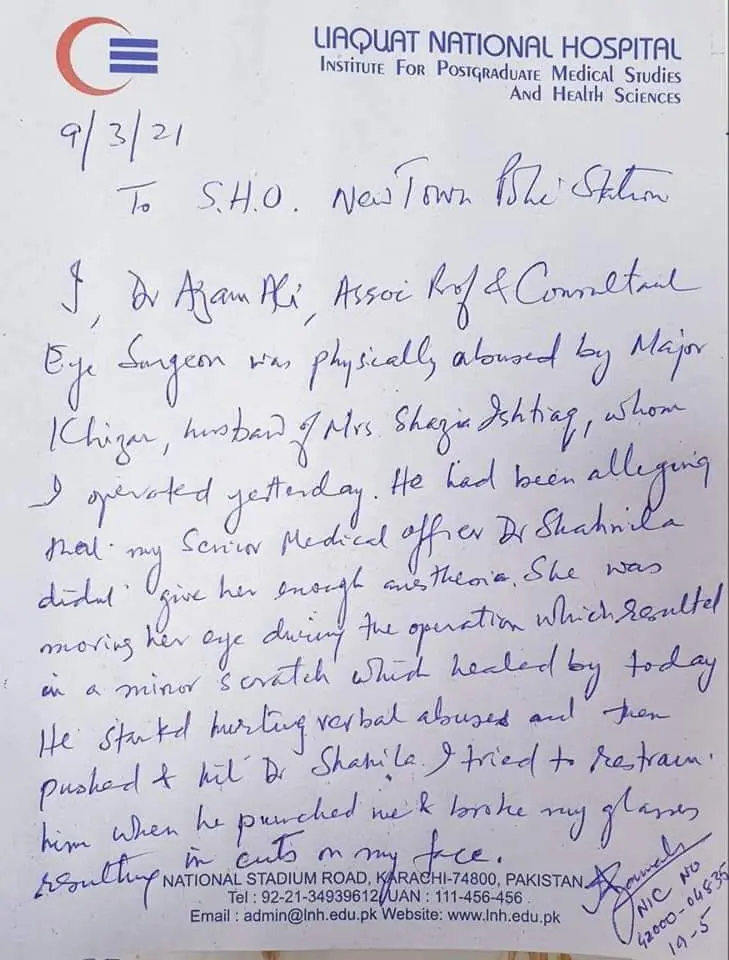 LIAQUAT NATIONAL HOSPITAL
INSTITUTE FOR POSTGRADUATE MEDICAL STUDIES
AND HEALTH SCIENCES
9/3/21
To S.H.O. New Town Police Station
I, Dr Azam Ali, Assoc Prof & Consultant
Eye Surgeon was physically abused by Major
Khizar, husband of Mrs. Shazia Ishtiaq, whom
I operated yesterday. He had been alleging
that my Senior Medical officer Dr Shahnila
didnt give her enough anesthesia. She was
moving her eye during the operation which resulted
in a minor scratch which healed by today
He started hurting verbal abuses and then
pushed & hit Dr Shahila. I tried to restrain
him when he punched me & broke my glasses
resulting in cuts on my face.
NATIONAL STADIUM ROAD, KARACHI-74800, PAKISTAN
Tel : 92-21-34939612, UAN : 111-456-456
Email : admin@lnh.edu.pk Website: www.lnh.edu.pk
NIC NO
42000-04835
19-5